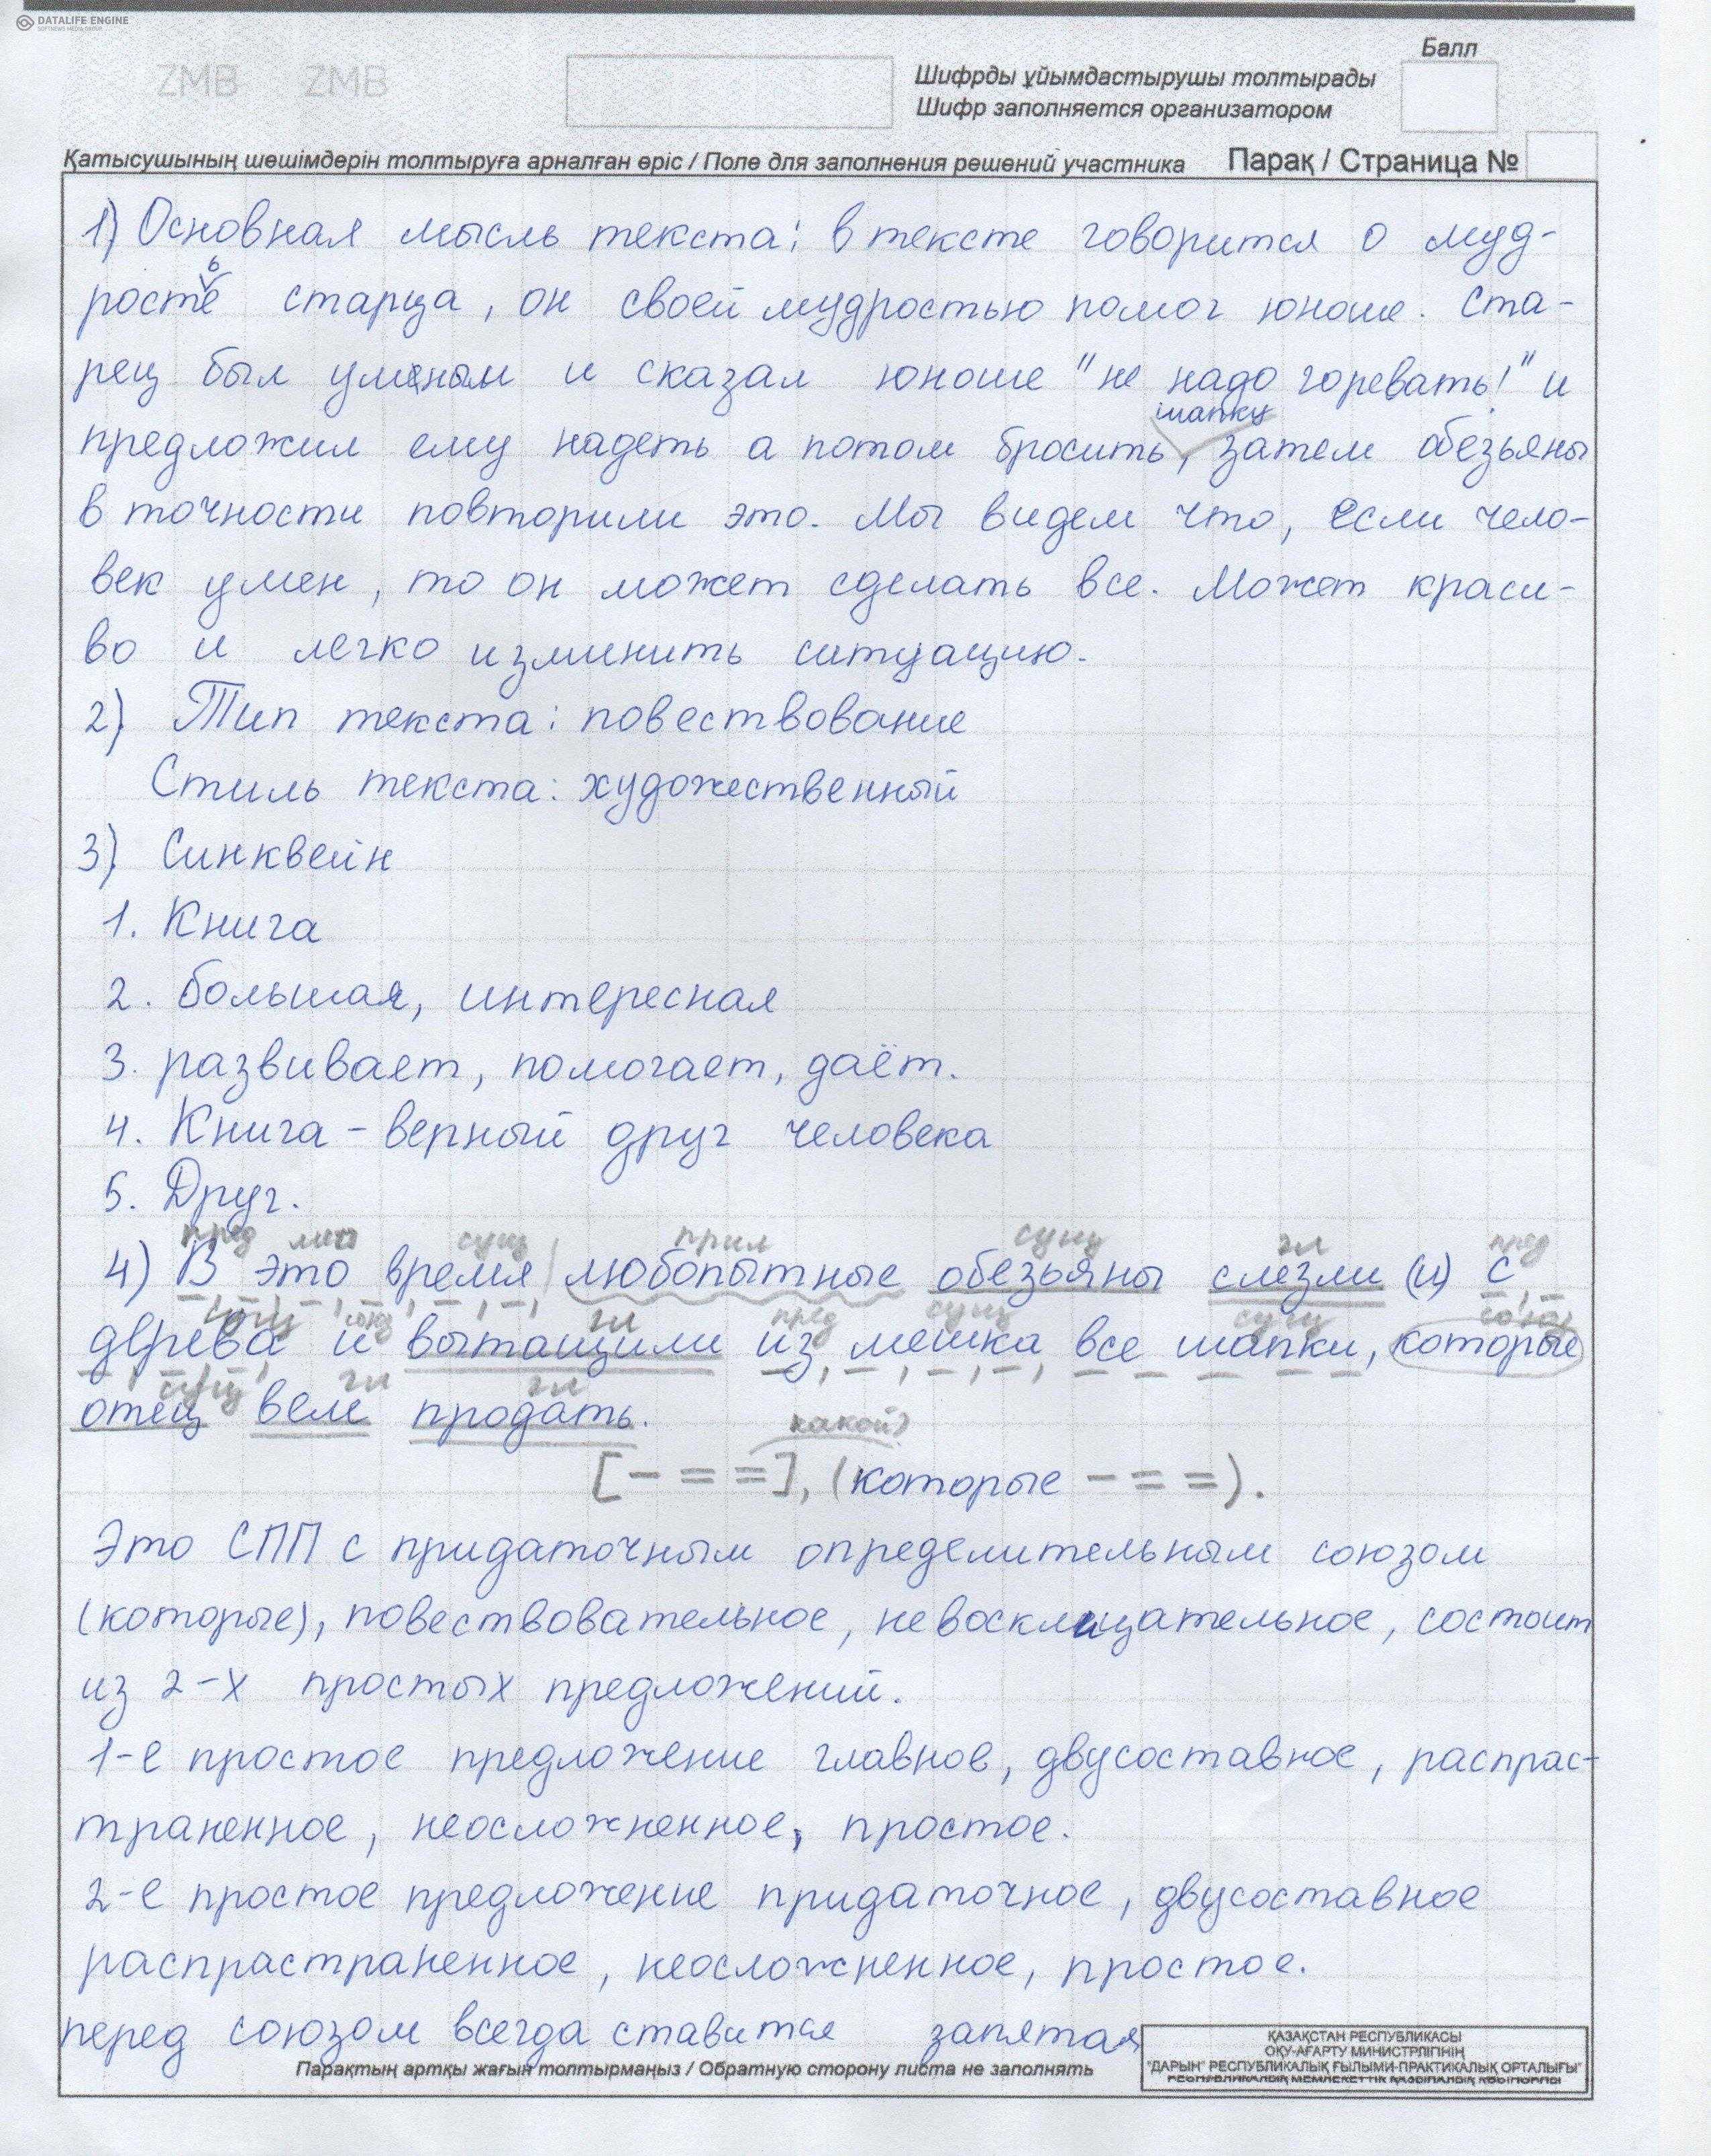 DATALIFE ENGINE
SOFTNEWS MEDIA GROUP
ZMB ZMB
Балл
Шифрды ұйымдастырушы толтырады
Шифр заполняется организатором
Қатысушының шешімдерін толтыруға арналған өріс / Поле для заполнения решений участника Парақ / Страница №
1) Основная мысль текста: в тексте говорится о муд-
в
росте старца, он своей мудростью помог юноше. Ста-
рец был умным и сказал юноше "не надо горевать!" и
шапку
предложил ему надеть а потом бросить, затем обезьяны
в точности повторили это. Мы видем что, если чело-
век умен, то он может сделать все. Может краси-
во и легко изминить ситуацию.
2) Тип текста: повествование
Стиль текста: художественный
3) Синквейн
1. Книга
2. Большая, интересная
3. развивает, помогает, даёт.
4. Книга - верный друг человека
5. Друг.
пред мест сущ прил сущ гл пред
4) В это время любопытные обезьяны слезли (и) с
сущ союз гл пред сущ сущ союз
дерева и вытащили из мешка все шапки, которые
сущ гл гл
отец веле продать.
какой?
[- = =], (которые - = =).
Это СПП с придаточным определительным союзом
(которые), повествовательное, невосклицательное, состоит
из 2-х простых предложений.
1-е простое предложение главное, двусоставное, распрас-
траненное, неосложненное, простое.
2-е простое предложение придаточное, двусоставное
распрастраненное, неосложненное, простое.
перед союзом всегда ставится запятая
Парақтың артқы жағын толтырмаңыз / Обратную сторону листа не заполнять
ҚАЗАҚСТАН РЕСПУБЛИКАСЫ
ОҚУ-АҒАРТУ МИНИСТРЛІГІНІҢ
"ДАРЫН" РЕСПУБЛИКАЛЫҚ ҒЫЛЫМИ-ПРАКТИКАЛЫҚ ОРТАЛЫҒЫ"
РЕСПУБЛИКАЛЫҚ МЕМЛЕКЕТТІК ҚАЗЫНАЛЫҚ КӘСІПОРНЫ